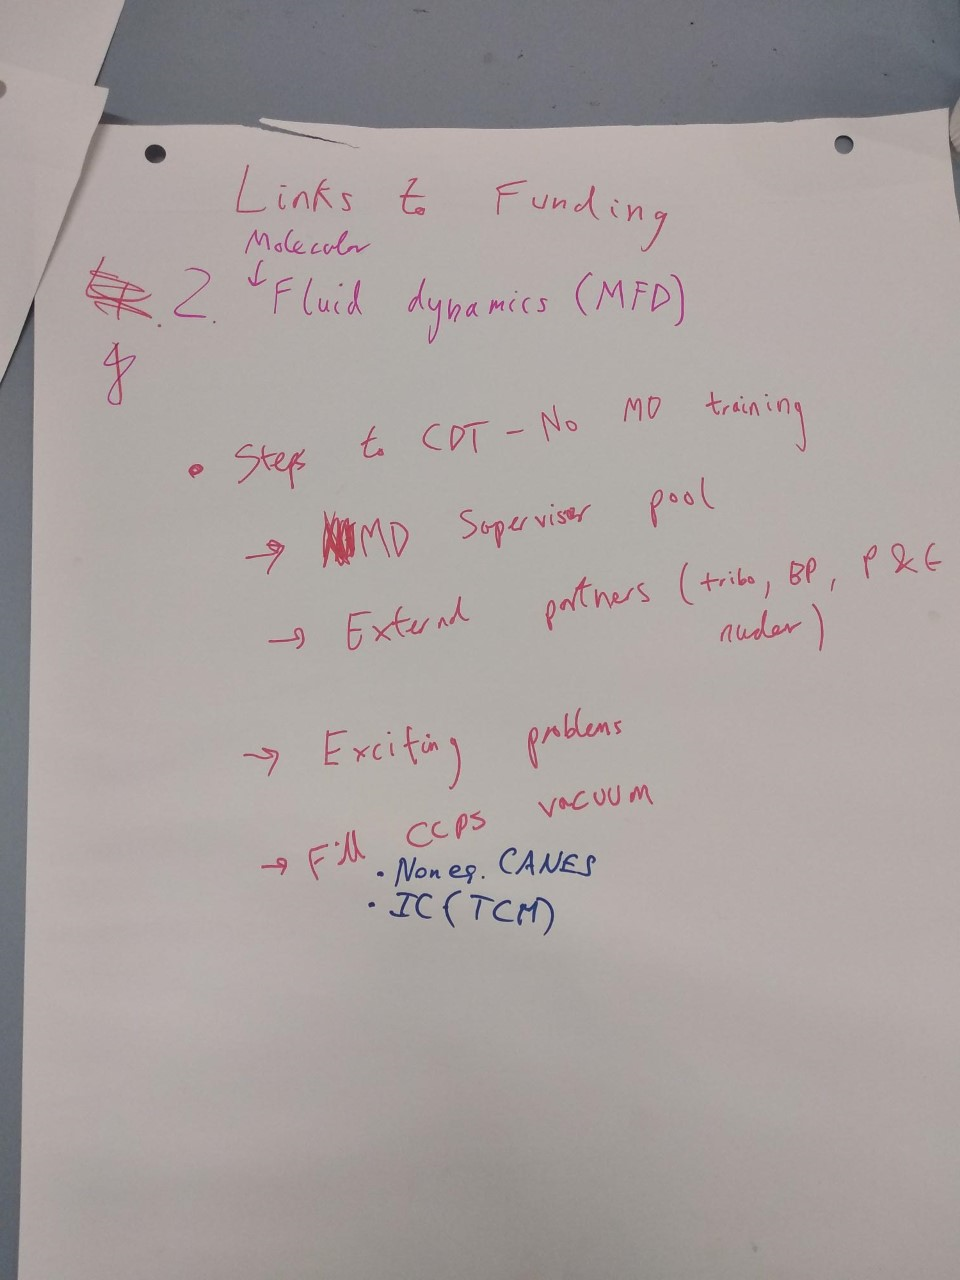 Links to Funding
Molecular
2. Fluid dynamics (MFD)
• Steps to CDT - No MD training
→ MD Supervisor pool
→ External partners (tribo, BP, P & E
nuclear)
→ Exciting problems
→ Fill CCPS vacuum
• Noneq. CANES
• IC (TCM)